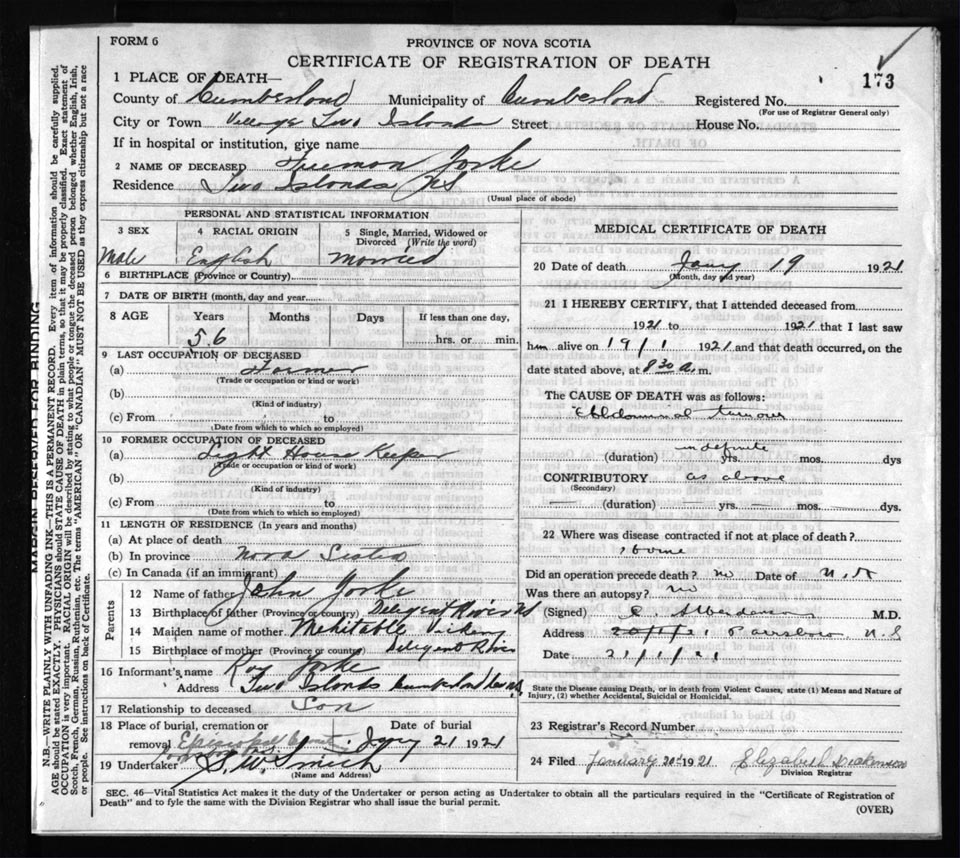 FORM 6
PROVINCE OF NOVA SCOTIA
CERTIFICATE OF REGISTRATION OF DEATH
173
1 PLACE OF DEATH—
County of Cumberland Municipality of Cumberland Registered No.
(For use of Registrar General only)
City or Town Village Two Islands Street House No.
If in hospital or institution, give name
2 NAME OF DECEASED Freemon Yorke
Residence Two Islands NS
(Usual place of abode)
PERSONAL AND STATISTICAL INFORMATION
3 SEX 4 RACIAL ORIGIN 5 Single, Married, Widowed or Divorced (Write the word)
Male English Married
6 BIRTHPLACE (Province or Country)
7 DATE OF BIRTH (month, day and year
8 AGE Years Months Days If less than one day,
56 hrs. or min.
9 LAST OCCUPATION OF DECEASED
(a) Farmer
(Trade or occupation or kind or work)
(b)
(Kind of industry)
(c) From to
(Date from which to which so employed)
10 FORMER OCCUPATION OF DECEASED
(a) Light House Keeper
(Trade or occupation or kind of work)
(b)
(Kind of industry)
(c) From to
(Date from which to which so employed)
11 LENGTH OF RESIDENCE (In years and months)
(a) At place of death
(b) In province Nova Scotia
(c) In Canada (if an immigrant)
Parents
12 Name of father John Yorke
13 Birthplace of father (Province or country) Diligent River NS
14 Maiden name of mother Mehitable Vickery
15 Birthplace of mother (Province or country) Diligent River
16 Informant's name Roy Yorke
Address Two Islands Cumberland
17 Relationship to deceased Son
18 Place of burial, cremation or Date of burial
removal Episcopal Jany 21 1921
19 Undertaker S. W. Smith
(Name and Address)
MEDICAL CERTIFICATE OF DEATH
20 Date of death Jany 19 1921
(Month, day and year)
21 I HEREBY CERTIFY, that I attended deceased from
1921 to 1921 that I last saw
him alive on 19/1 1921 and that death occurred, on the
date stated above, at 8 30 a.m.
The CAUSE OF DEATH was as follows:
Abdominal tumour
indefinite
(duration) yrs. mos. dys
CONTRIBUTORY as above
(Secondary)
(duration) yrs. mos. dys.
22 Where was disease contracted if not at place of death?
home
Did an operation precede death? no Date of
Was there an autopsy? no
(Signed) M.D.
Address 20/1/21 Parrsboro N.S
Date 21/1/21
State the Disease causing Death, or in death from Violent Causes, state (1) Means and Nature of Injury, (2) whether Accidental, Suicidal or Homicidal.
23 Registrar's Record Number
24 Filed January 20th 1921 Elizabeth Dickinson
Division Registrar
SEC. 46—Vital Statistics Act makes it the duty of the Undertaker or person acting as Undertaker to obtain all the particulars required in the "Certificate of Registration of
Death" and to fyle the same with the Division Registrar who shall issue the burial permit.
(OVER)
MARGIN RESERVED FOR BINDING
N.B.—WRITE PLAINLY WITH UNFADING INK—THIS IS A PERMANENT RECORD. Every item of information should be carefully supplied.
AGE should be stated EXACTLY. PHYSICIANS should STATE CAUSE OF DEATH in plain terms, so that it may be properly classified. Exact statement of
OCCUPATION is very important. RACIAL ORIGIN will be described by stating to what people or tongue the deceased person belonged whether English, Irish,
Scotch, French, German, Russian, Ruthenian, etc. The terms "AMERICAN" OR "CANADIAN" MUST NOT BE USED as they express citizenship but not a race
or people. See instructions on back of Certificate.